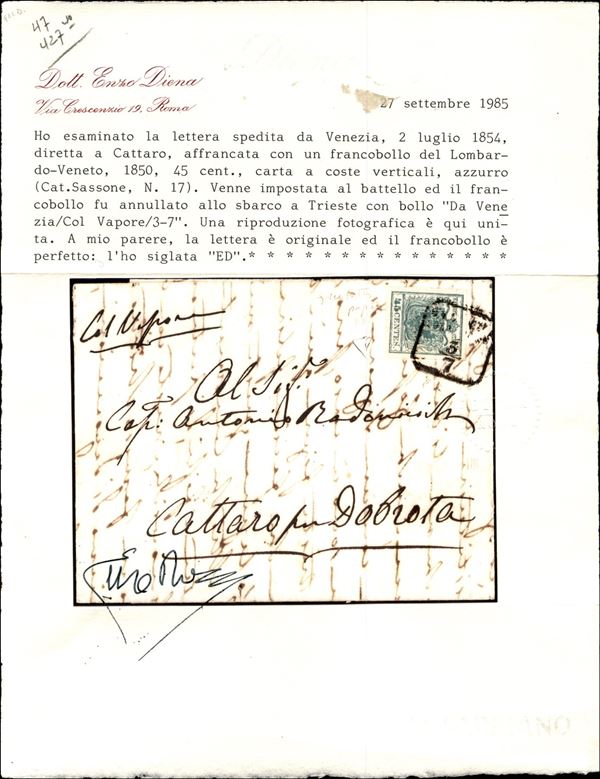 47
427
Dott. Enzo Diena
Via Crescenzio 19, Roma
27 settembre 1985
Ho esaminato la lettera spedita da Venezia, 2 luglio 1854,
diretta a Cattaro, affrancata con un francobollo del Lombar-
do-Veneto, 1850, 45 cent., carta a coste verticali, azzurro
(Cat.Sassone, N. 17). Venne impostata al battello ed il fran-
cobollo fu annullato allo sbarco a Trieste con bollo "Da Vene
zia/Col Vapore/3-7". Una riproduzione fotografica è qui uni-
ta. A mio parere, la lettera è originale ed il francobollo è
perfetto: l'ho siglata "ED".* * * * * * * * * * * * * * * *
Col Vapore
45 CENTES.
3
7
Al Sigr.
Cap: Antonio Radonicich
Cattaro per Dobrota